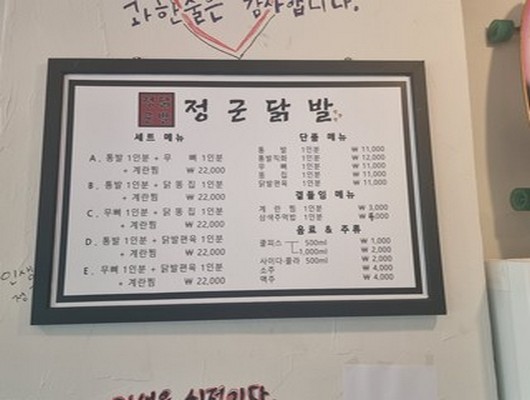 과한술은 감사합니다.
정근닭발
세트 메뉴
A. 통발 1인분 + 무 뼈 1인분
+ 계란찜 ₩ 22,000
B. 통발 1인분 + 닭 똥 집 1인분
+ 계란찜 ₩ 22,000
C. 무뼈 1인분 + 닭 똥 집 1인분
+ 계란찜 ₩ 22,000
D. 통발 1인분 + 닭발편육 1인분
+ 계란찜 ₩ 22,000
E. 무뼈 1인분 + 닭발편육 1인분
+ 계란찜 ₩ 22,000
단품 메뉴
통 발 1인분 ₩ 11,000
통발직화 1인분 ₩ 12,000
무 뼈 1인분 ₩ 11,000
똥 집 1인분 ₩ 11,000
닭발편육 1인분 ₩ 11,000
곁들임 메뉴
계 란 찜 1인분 ₩ 3,000
삼색주먹밥 1인분
음료 & 주류
쿨피스 500ml ₩ 1,000
1,000ml ₩ 2,000
사이다·콜라 500ml ₩ 2,000
소주 ₩ 4,000
맥주 ₩ 4,000
인생